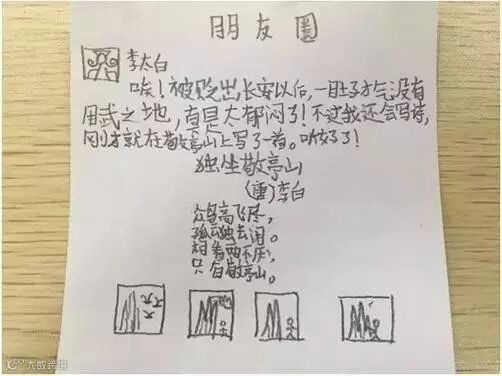 朋友圈
李太白
唉!被贬出长安以后,一肚子才气没有
用武之地,真是太郁闷了!不过我还会写诗,
刚才就在敬亭山上写了一首。听好了!
独坐敬亭山
(唐)李白
众鸟高飞尽,
孤云独去闲。
相看两不厌,
只有敬亭山。
大数跨境